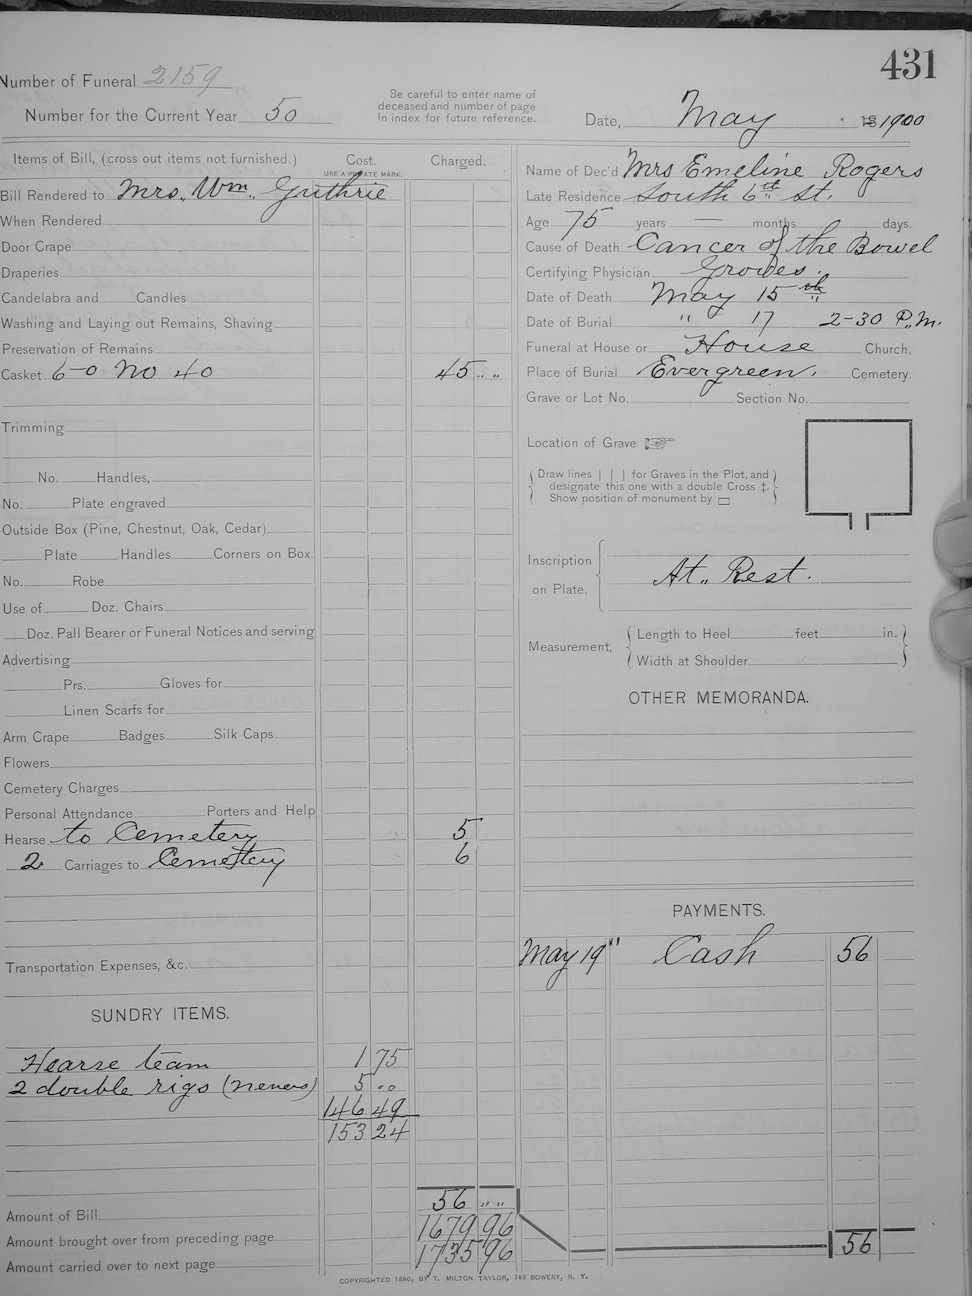 431
Number of Funeral 2159
Number for the Current Year 50
Be careful to enter name of
deceased and number of page
In index for future reference.
Date, May 18 1900
Items of Bill, (cross out items not furnished.) Cost. Charged.
USE A PRIVATE MARK.
Bill Rendered to Mrs. Wm. Guthrie
When Rendered
Door Crape
Draperies
Candelabra and Candles
Washing and Laying out Remains, Shaving
Preservation of Remains
Casket 6-0 No 40 45 .. ..
Trimming
No. Handles,
No. Plate engraved
Outside Box (Pine, Chestnut, Oak, Cedar)
Plate Handles Corners on Box.
No. Robe
Use of Doz. Chairs
Doz. Pall Bearer or Funeral Notices and serving
Advertising
Prs. Gloves for
Linen Scarfs for
Arm Crape Badges Silk Caps
Flowers
Cemetery Charges
Personal Attendance Porters and Help
Hearse to Cemetery 5
2 Carriages to Cemetery 6
Transportation Expenses, &c.
SUNDRY ITEMS.
Hearse team 1 75
2 double rigs (nevers) 5 ..
146 49
153 24
Amount of Bill 56 .. ..
Amount brought over from preceding page 1679 96
Amount carried over to next page 1735 96
Name of Dec'd Mrs Emeline Rogers
Late Residence South 6th St.
Age 75 years — months days.
Cause of Death Cancer of the Bowel
Certifying Physician Growes.
Date of Death May 15th
Date of Burial " 17 2-30 P.M.
Funeral at House or House Church.
Place of Burial Evergreen. Cemetery.
Grave or Lot No. Section No.
Location of Grave
Draw lines | | | for Graves in the Plot, and
designate this one with a double Cross ‡.
Show position of monument by ▭
Inscription
on Plate. At. Rest.
Measurement, Length to Heel feet in.
Width at Shoulder
OTHER MEMORANDA.
PAYMENTS.
May 19" Cash 56
56
COPYRIGHTED 1890, BY T. MILTON TAYLOR, 163 BOWERY, N. Y.